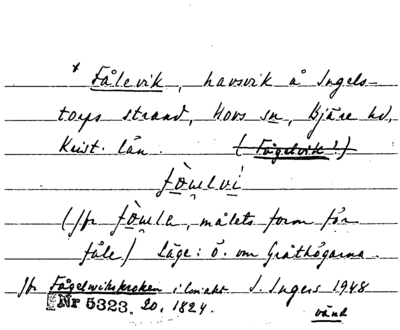 * Fålevik, havsvik å Ingels-
torps strand, Hovs sn, Bjäre hd,
Krist. län. (Fågelvik?)
fò̤u̯lvì
(jfr fò̤u̯la, målets form för
fåle) Läge: ö. om Gråthögarna.
jfr Fågelwikskroken ilmakt S. Ingers 1948
Nr 5323, 20, 1824. vänd